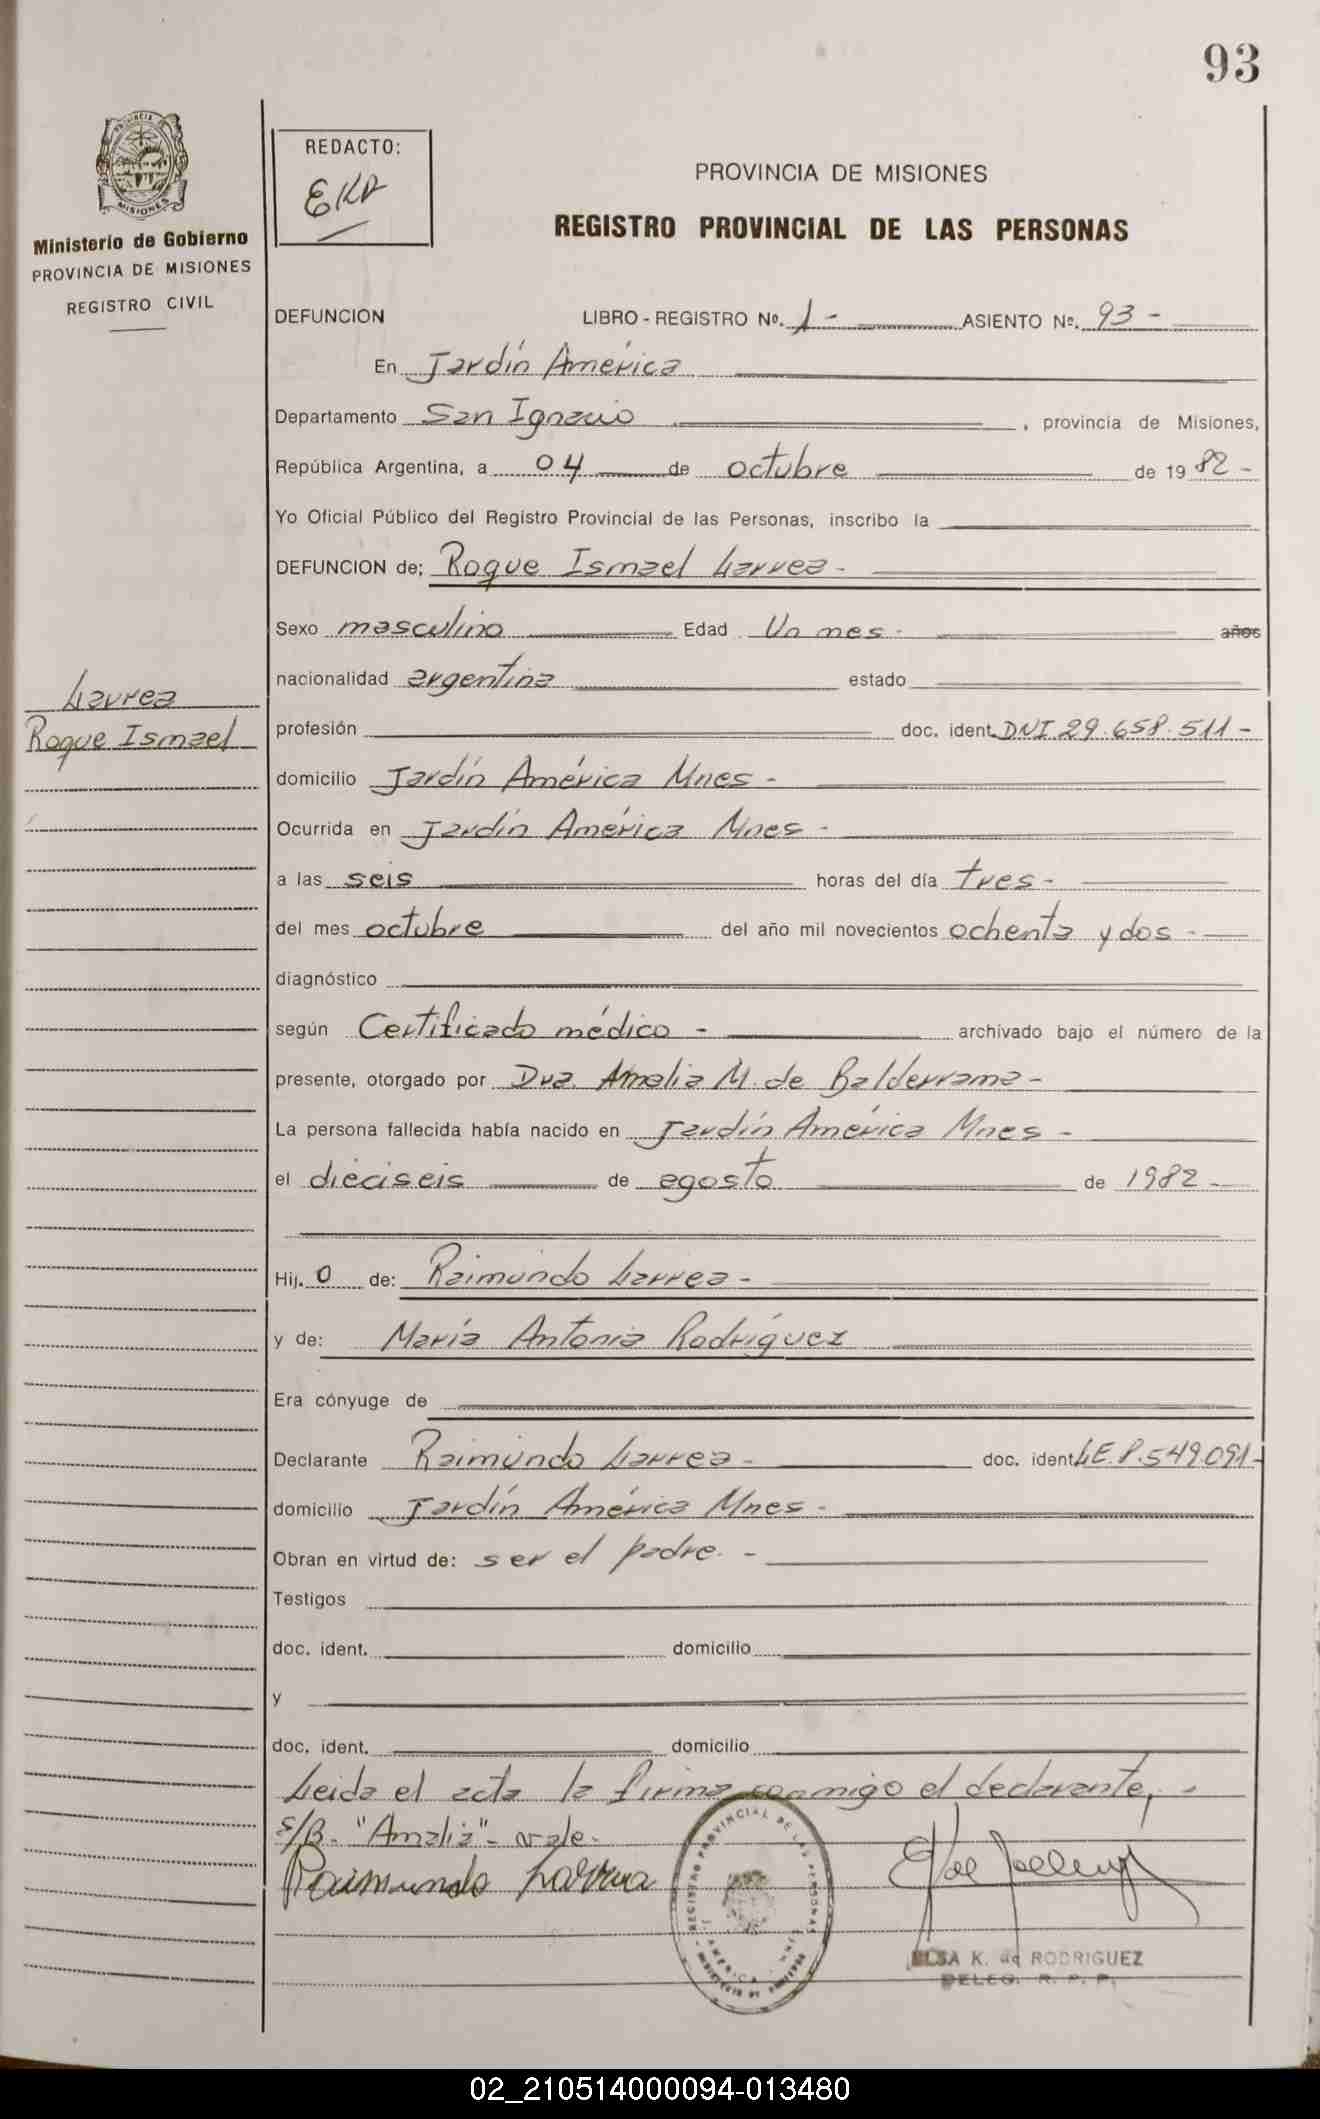 93
PROVINCIA DE
MISIONES
Ministerio de Gobierno
PROVINCIA DE MISIONES
REGISTRO CIVIL
REDACTO:
EKR
PROVINCIA DE MISIONES
REGISTRO PROVINCIAL DE LAS PERSONAS
DEFUNCION LIBRO - REGISTRO Nº. 1 - ASIENTO Nº. 93 -
En Jardín América
Departamento San Ignacio , provincia de Misiones,
República Argentina, a 04 de octubre de 19 82 -
Yo Oficial Público del Registro Provincial de las Personas, inscribo la
DEFUNCION de; Roque Ismael Larrea -
Sexo masculino Edad Un mes - años
nacionalidad argentina estado
Larrea
Roque Ismael
profesión doc. ident. DNI 29.658.511 -
domicilio Jardín América Mnes -
Ocurrida en Jardín América Mnes -
a las seis horas del día tres -
del mes octubre del año mil novecientos ochenta y dos -
diagnóstico
según Certificado médico - archivado bajo el número de la
presente, otorgado por Dra. Amalia M. de Balderrama -
La persona fallecida había nacido en Jardín América Mnes -
el dieciseis de agosto de 1982 -
Hij. o de: Raimundo Larrea -
y de: María Antonia Rodríguez
Era cónyuge de
Declarante Raimundo Larrea - doc. ident. LE 8.549.091 -
domicilio Jardín América Mnes -
Obran en virtud de: ser el padre. -
Testigos
doc. ident. domicilio
y
doc. ident. domicilio
Leida el acta la firma conmigo el declarante, -
S/B. "Amalia" - vale -
Raimundo Larrea
REGISTRO PROVINCIAL DE LAS PERSONAS
ELSA K. de RODRIGUEZ
DELEG. R. P. P.
02_210514000094-013480